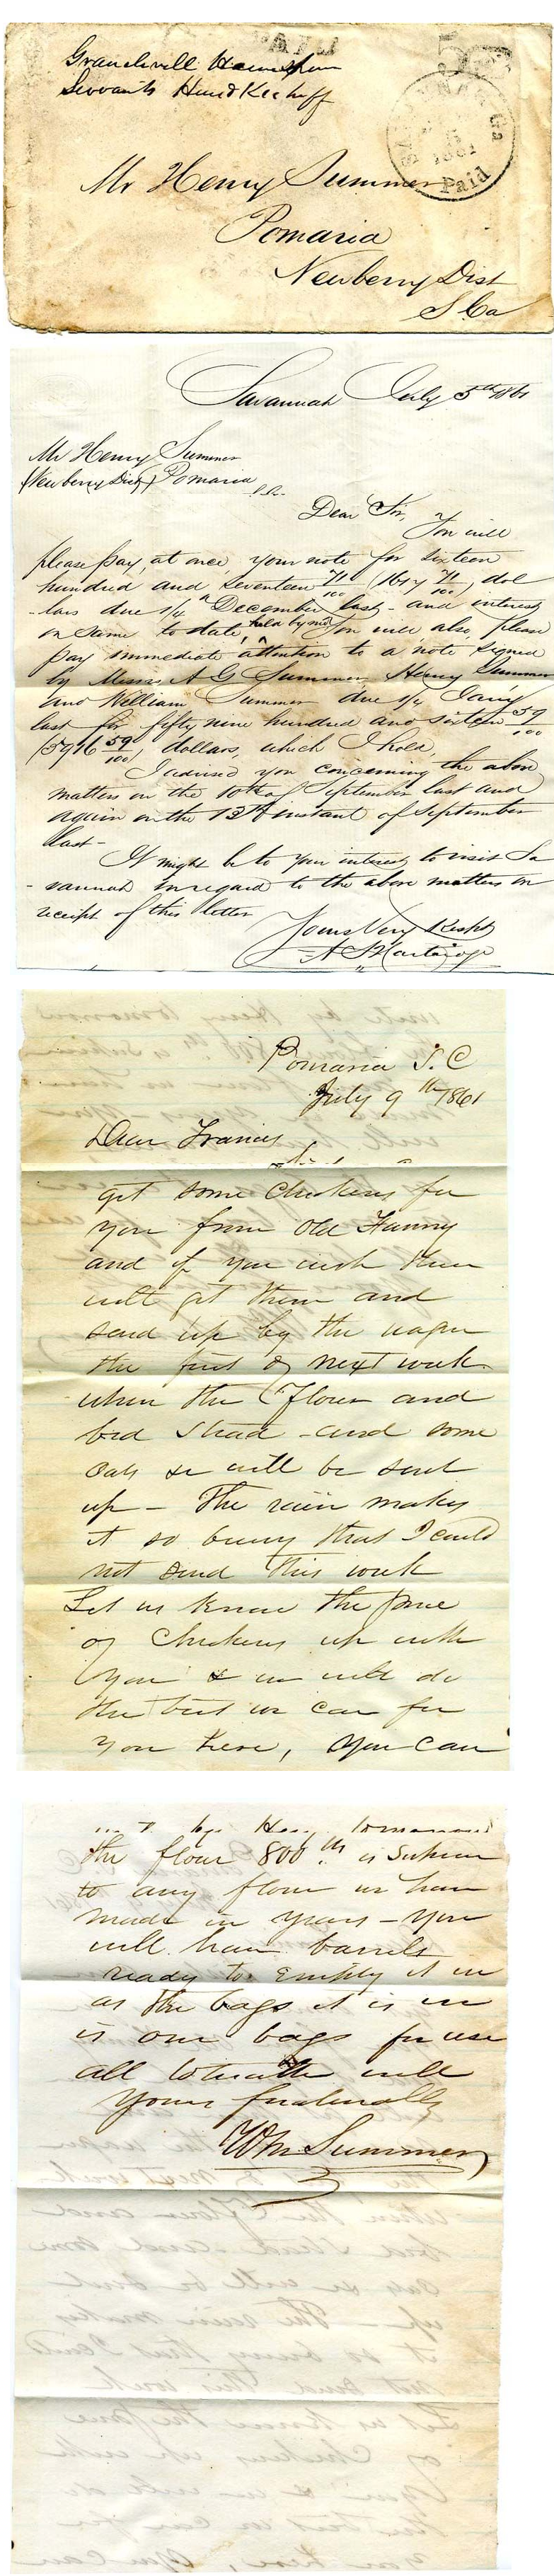 PAID
5
Graniteville Homespun
Servants Handkerchiff
SAVANNAH Ga
5
1861
Paid
Mr Henry Summer
Pomaria
Newberry Dist
S Ca
Savannah July 5th 1861
Mr Henry Summer
(Newberry Dist) Pomaria
S.C.
Dear Sir, You will
please pay, at once, your note for sixteen
hundred and seventeen 71/100 (1617 71/100) dol
-lars due 1/4 December last - and interest
on same to date, held by me. You will also, please
pay immediate attention to a note signed
by Messrs A G Summer Henry Summer
and William Summer due 1/4 Jany
last for fifty nine hundred and sixteen 59/100
(5916 59/100) dollars, which I hold,
I advised you concerning the above
matters on the 10th of September last and
again on the 13th instant of September
last -
It might be to your interest to visit Sa
-vannah in regard to the above matters on
receipt of this letter
Yours Very Respy
A S Hartridge
Pomaria S.C
July 9th 1861
Dear Francis
get some Chickens for
you from Old Fanny
and if you wish them
will get them and
send up by the wagon
the first of next week
when the Flour and
bed stead - and some
Oats &c will be sent
up - The rain makes
it so busy that I could
not send this week
Let us know the price
of Chickens up with
you & we will do
the best we can for
you here, You can
by Henry tomorrow
the flour 800 is Superior
to any flour we have
made in years - you
will have barrels
ready to Empty it in
as the bags it is in
is our bags for use
all well
Yours fraternally
Wm Summer